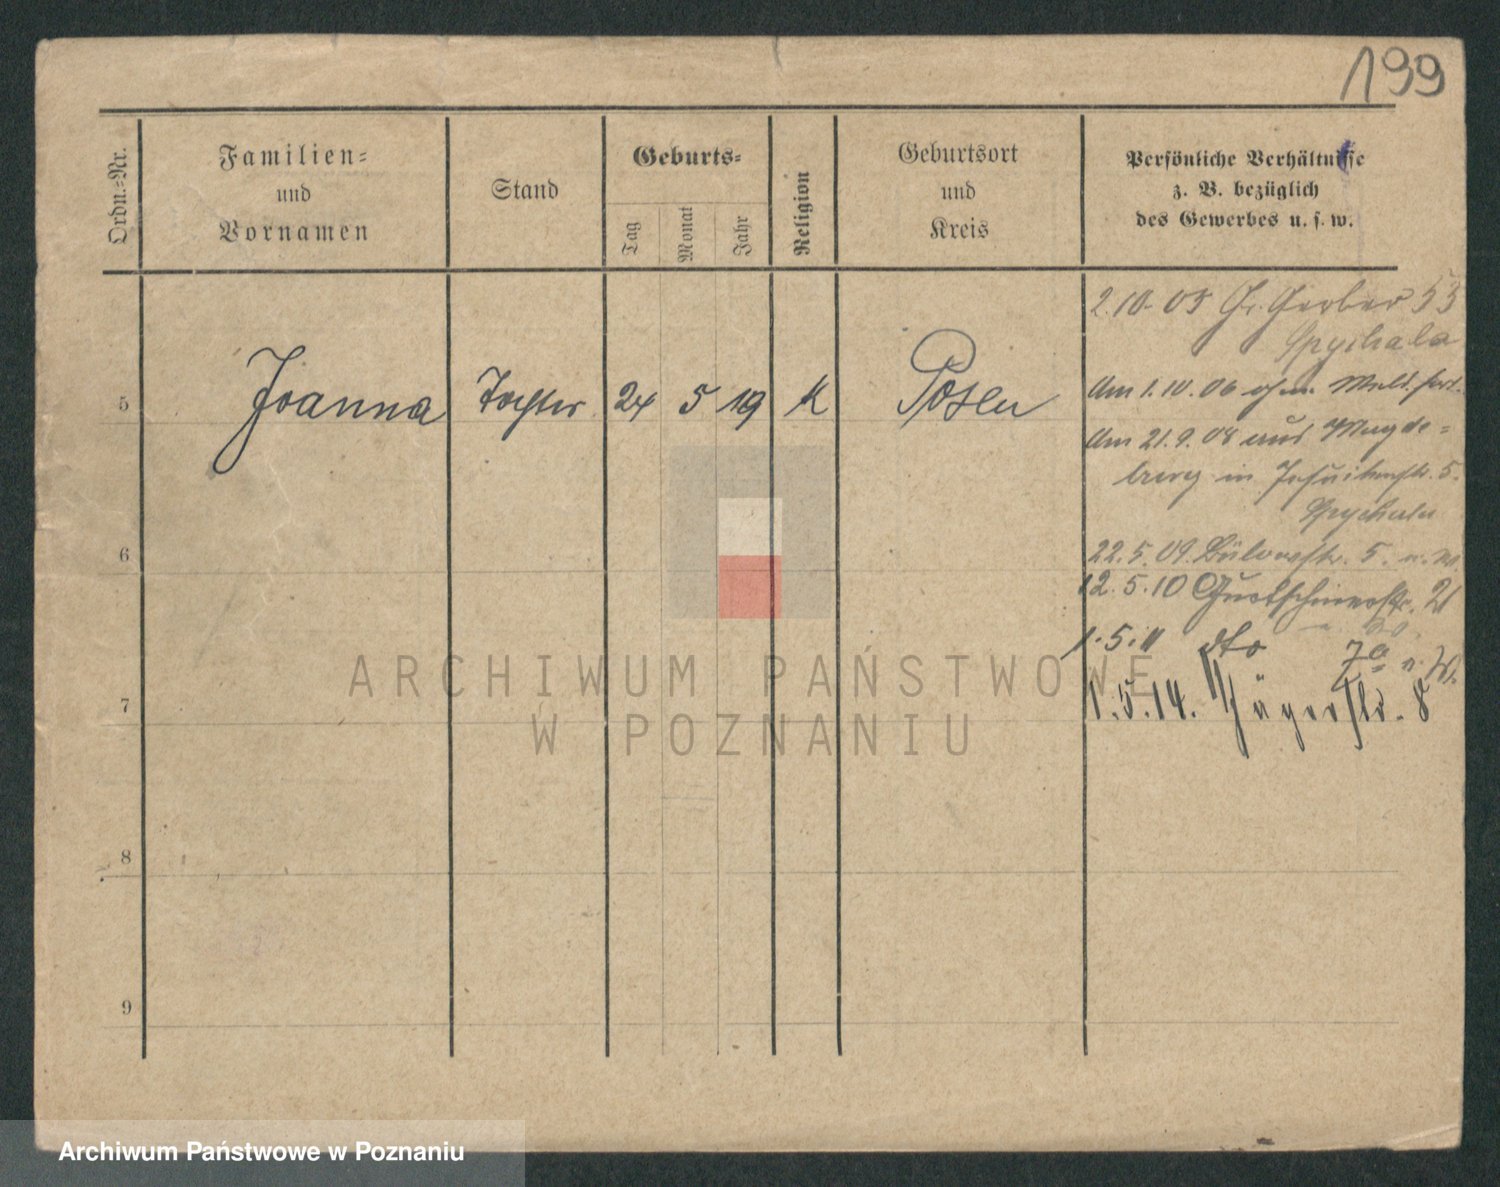 199
Ordn.=Nr.
Familien=
und
Vornamen
Stand
Geburts=
Tag
Monat
Jahr
Religion
Geburtsort
und
Kreis
Persönliche Verhältnisse
z. B. bezüglich
des Gewerbes u. s. w.
2.10.05 Gr. Gerber 53
Spychala
5 Joanna Tochter 24 5 19 k Posen
Am 1.10.06 ohne Meld. fort.
Am 21.9.08 aus Magde=
burg in Jesuitenstr. 5.
Spychala
6
22.5.09. Bülowstr. 5. u. W.
12.5.10 Gurtschinerstr. 21
1.5.11 dto 7a u. W.
7
1.5.14. Jägerstr. 8
8
9
ARCHIWUM PAŃSTWOWE
W POZNANIU
Archiwum Państwowe w Poznaniu